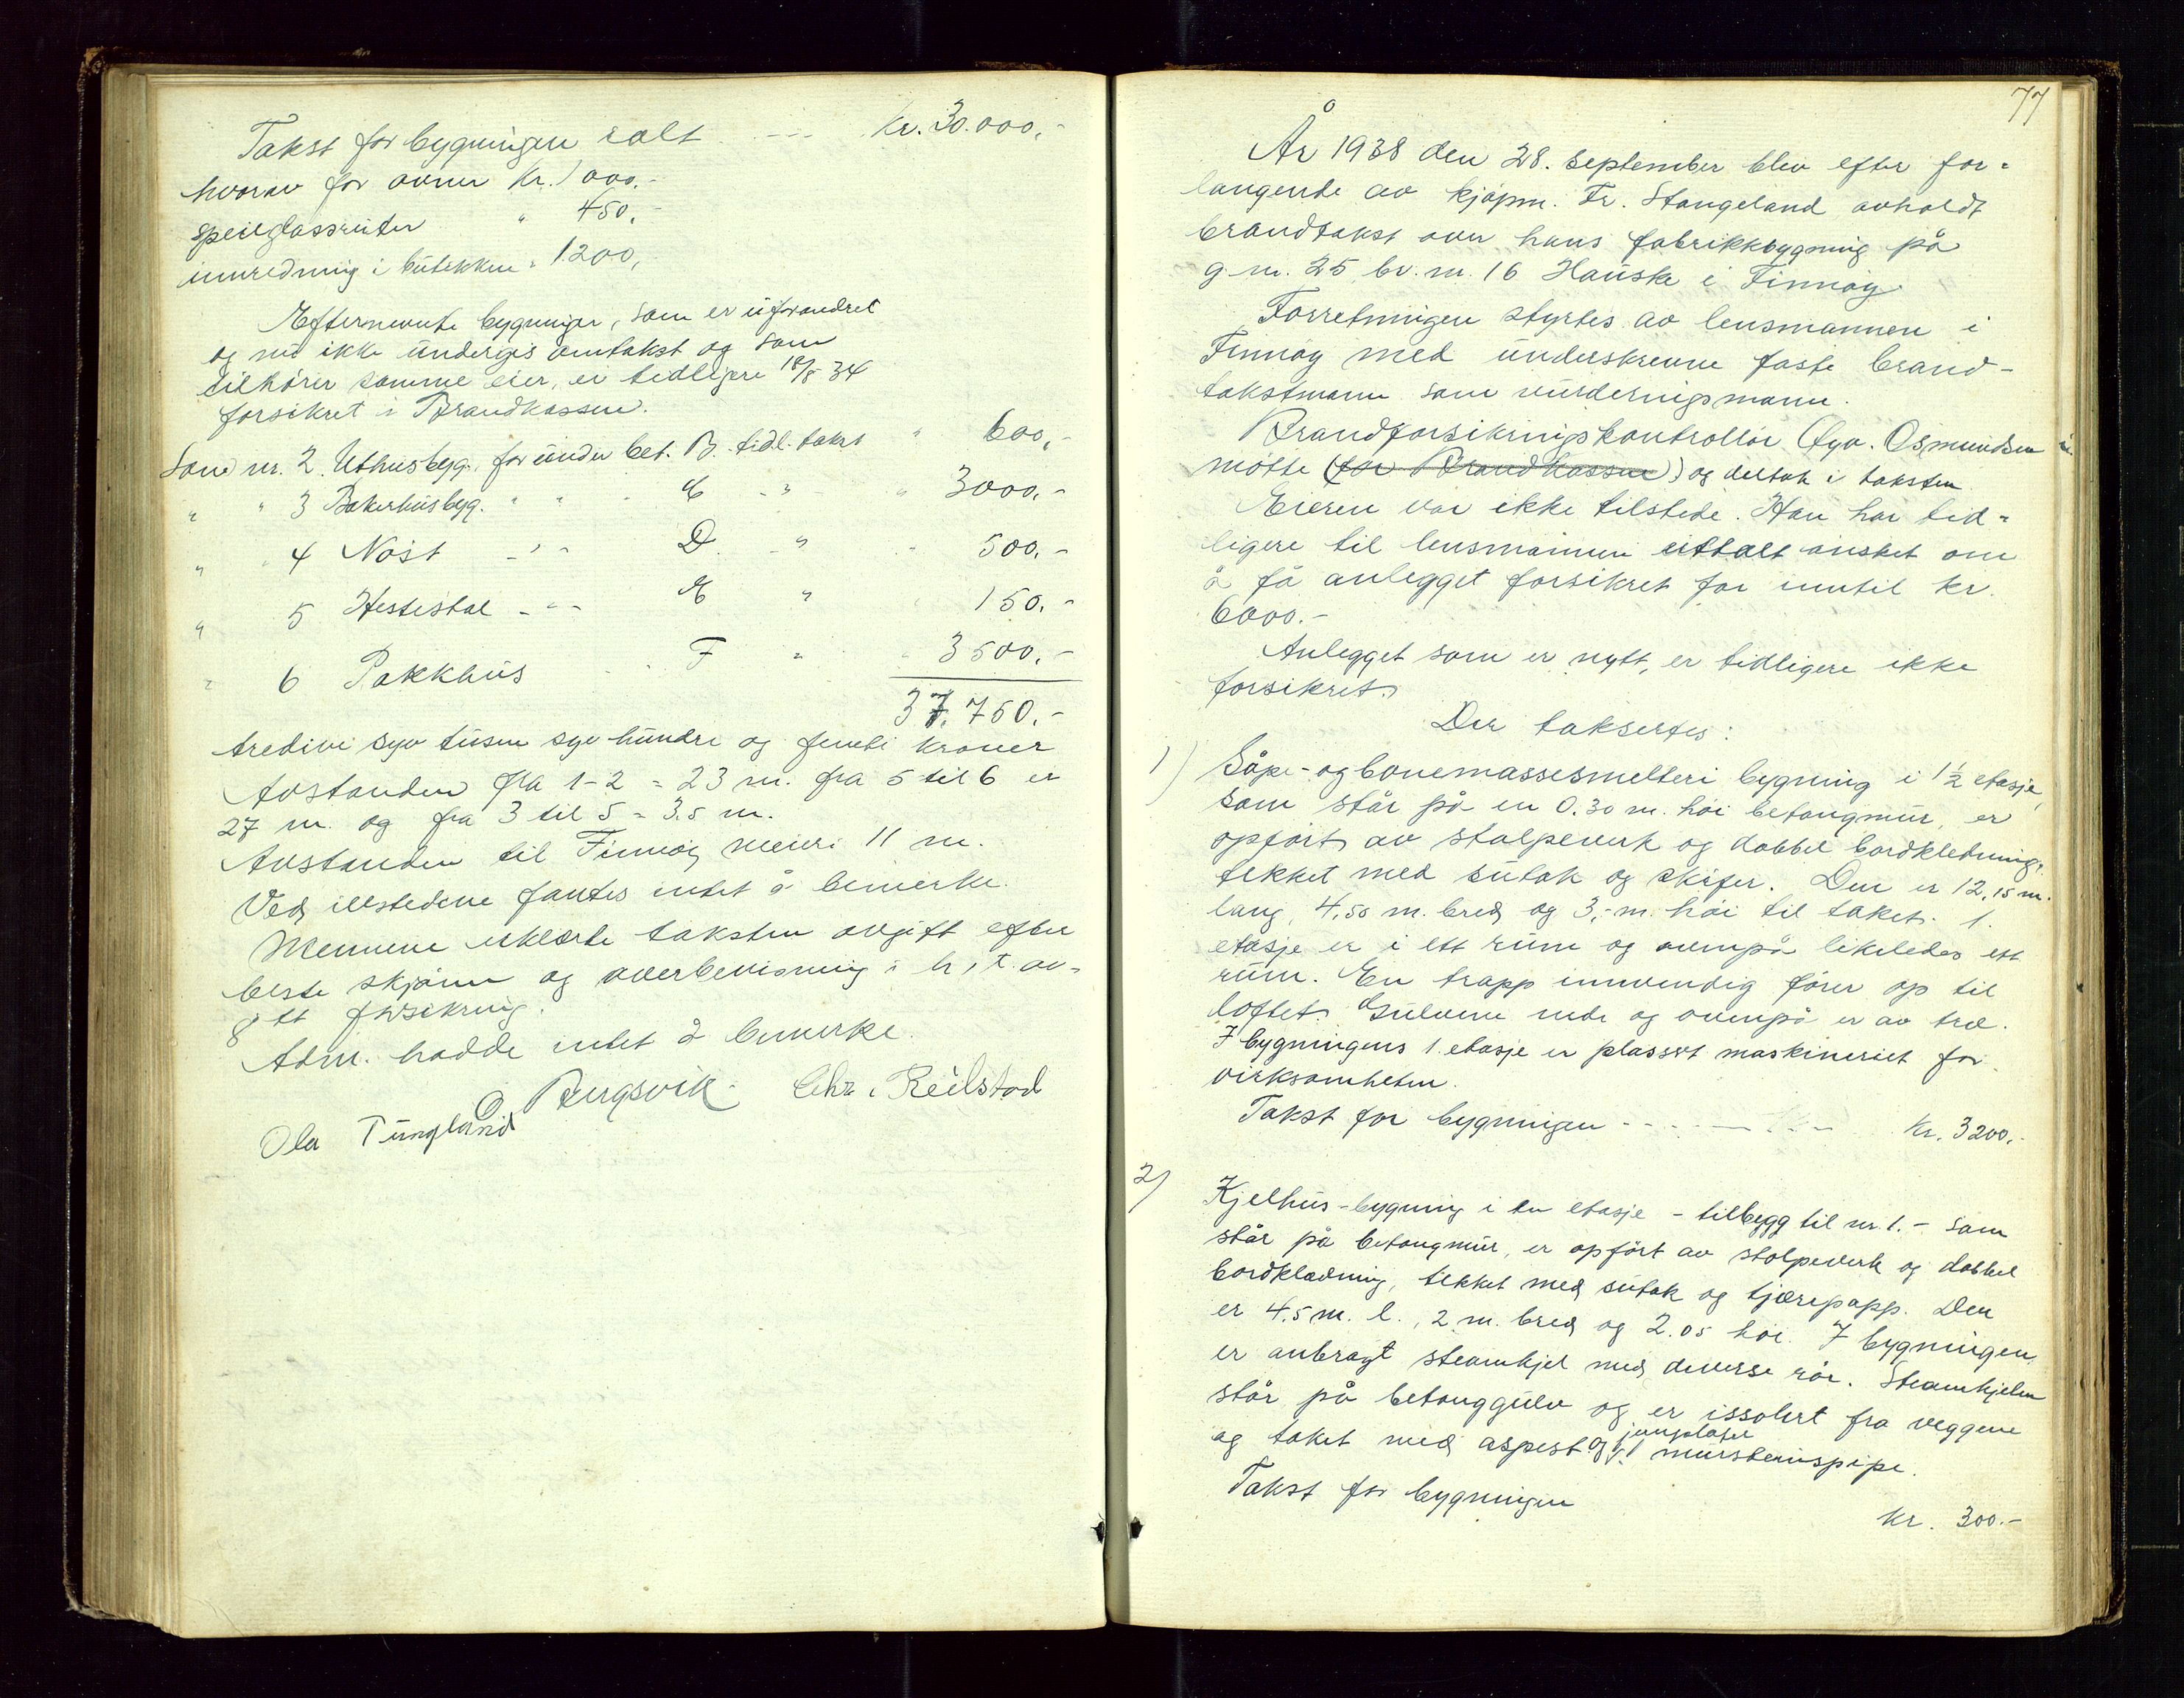 Takst for bygningen ialt --- Kr. 30.000,-
hvorav for ovner Kr. 1000,-
speilglassruter " 450,-
innredning i butikken " 1200,
Efternevnte bygninger, som er uforandret
og nu ikke undergis omtakst og som
tilhører samme eier, er tidligere 18/5 34
forsikret i Brandkassen.
Som nr. 2 Uthusbygg. før under bet. B. tidl. takst " 600,-
" " 3 Bakerhusbyg. " " " C - " - " 3000,-
" " 4 Nøst - " - D. - " " 500,-
" 5 Hestestal - " - E " 150,-
" 6 Pakkhus " F " " 3500,-
37.750.-
tredive syv tusen syv hundre og femti kroner
Avstanden fra 1-2 = 23 m. fra 5 til 6 er
27 m. og fra 3 til 5 = 3.5 m.
Avstanden til Finnøy meieri 11 m.
Ved illstedene fantes intet å bemerke.
Mennene erklærte taksten avgitt efter
beste skjønn og overbevisning i h. t. av-
gitt forsikring.
Adm. hadde intet å bemerke.
O Bergsvik. Chr. Reilstad
Ola Tungland
77
År 1938 den 28. september blev efter for-
langende av kjøpm. Fr. Stangeland avholdt
brandtakst over hans fabrikkbygning på
g.nr. 25 br.nr. 16 Hauske i Finnøy.
Forretningen styrtes av lensmannen i
Finnøy med underskrevne faste brand-
takstmenn som vurderingsmenn.
Brandforsikringskontrollør Øyv. Osmundsen
møtte (for Brandkassen) og deltok i taksten.
Eieren var ikke tilstede. Han har tid-
ligere til lensmannen uttalt ønsket om
å få anlegget forsikret for inntil kr.
6000.-
Anlegget som er nytt, er tidligere ikke
forsikret.
Der taksertes:
1) Såpe- og bonemassesmelteri bygning i 1½ etasje,
som står på en 0.30 m. høi betongmur, er
opført av stolpeverk og dobbel bordkledning,
tekket med sutak og skifer. Den er 12,15 m.
lang, 4,50 m. bred og 3,- m. høi til taket. 1.
etasje er i ett rum og ovenpå likeledes ett
rum. En trapp innvendig fører op til
loftet. Gulvene nede og ovenpå er av tre.
I bygningens 1. etasje er plassert maskineriet for
virksomheten.
Takst for bygningen - - - - - - - Kr. 3200.-
2) Kjelhus-bygning i en etasje - tilbygg til nr. 1. - som
står på betongmur, er opført av stolpeverk og dobbel
bordklædning, tekket med sutak og tjærepapp. Den
er 4.5 m. l., 2 m. bred og 2.05 høi. I bygningen
er anbragt steamkjel med diverse rør. Steamkjelen
står på betonggulv og er issolert fra veggene
og taket med aspest og jernplater 1 murstenspipe.
Takst for bygningen
kr. 300.-